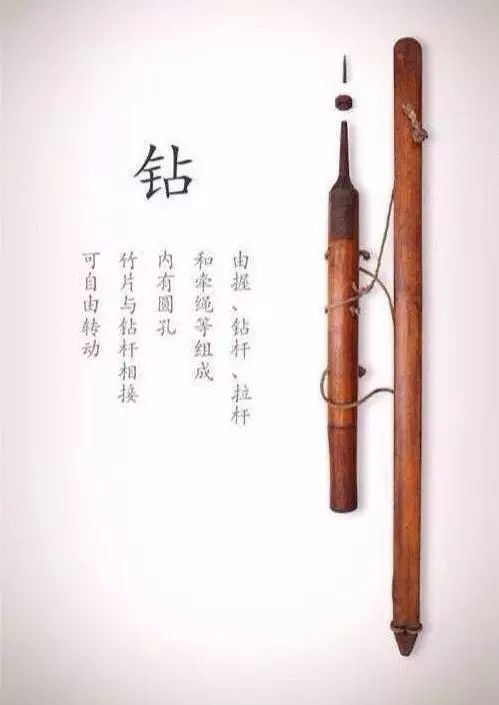 钻
由握、钻杆、拉杆
和牵绳等组成
内有圆孔
竹片与钻杆相接
可自由转动